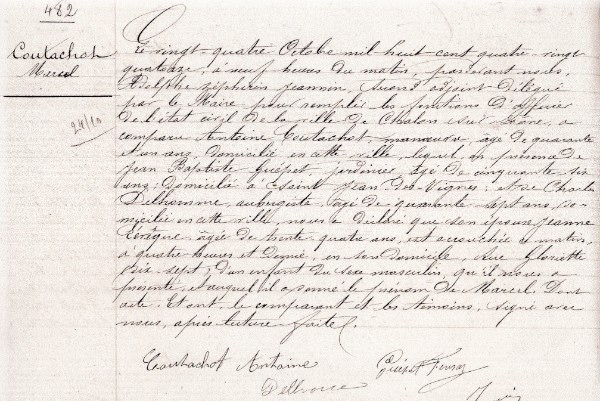 482
Coutachot
Marcel
24/10
Le vingt-quatre Octobre mil huit cent quatre-vingt
quatorze, à neuf heures du matin, par devant nous,
Adolphe Zéphirin Jeannin, adjoint délégué
par le Maire pour remplir les fonctions d'officier
de l'état civil de la ville de Chalon sur Saône, a
comparu Antoine Coutachot, manœuvre, âgé de quarante
ans, domicilié en cette ville, lequel, en présence de
Jean Baptiste Guepet, jardinier, âgé de cinquante six
ans, domicilié à Saint Jean des Vignes; et de Charles
Delhomme, aubergiste, âgé de quarante sept ans, do-
micilié en cette ville, nous a déclaré que son épouse Jeanne
Lévêque, âgée de trente quatre ans, est accouchée ce matin,
à quatre heures et demie, en son domicile, rue Gloriette
dix sept, d'un enfant du sexe masculin, qu'il nous a
présenté, et auquel il a donné le prénom de Marcel. Dont
acte. Et ont, le comparant et les témoins, signé avec
nous, après lecture faite.
Coutachot Antoine